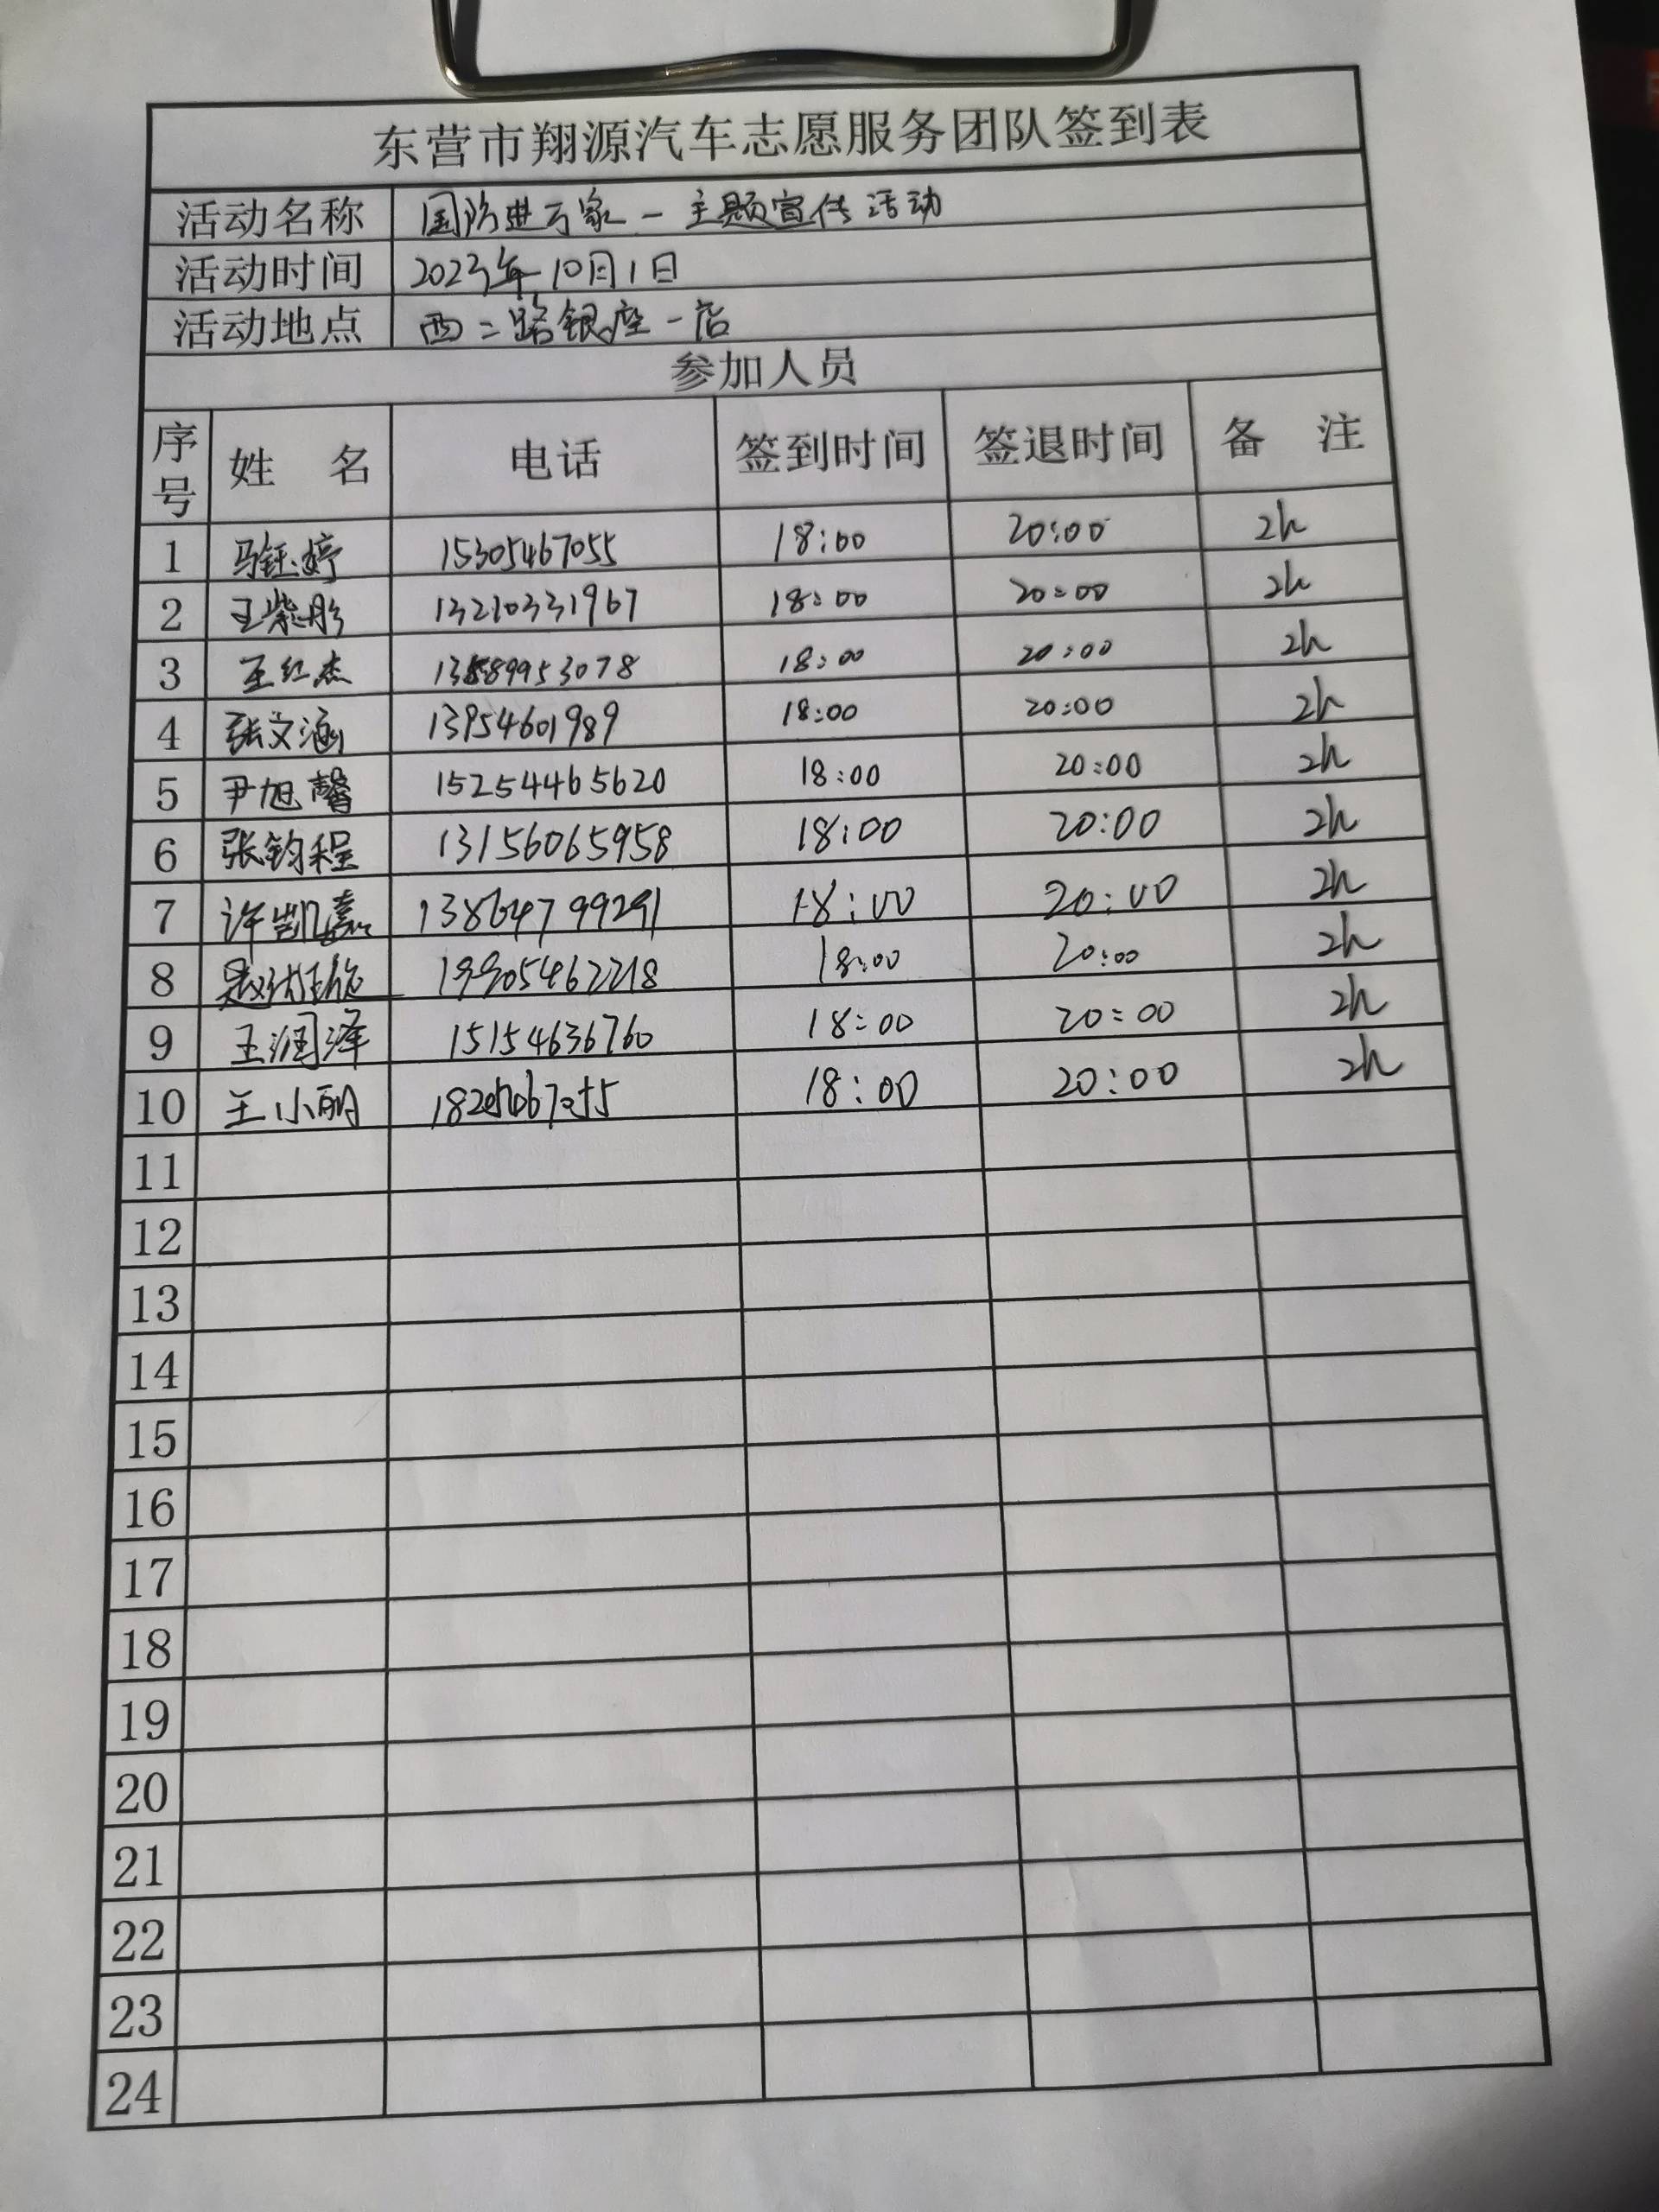 东营市翔源汽车志愿服务团队签到表
活动名称 国防进万家－主题宣传活动
活动时间 2023年10月1日
活动地点 西二路银座一店
参加人员
序号 姓名 电话 签到时间 签退时间 备注
1 马钰婷 15305467055 18:00 20:00 2h
2 王紫彤 13210331967 18:00 20:00 2h
3 王红杰 18:00 20:00 2h
4 张文涵 13954601989 18:00 20:00 2h
5 尹旭馨 15254465620 18:00 20:00 2h
6 张钧程 13156065958 18:00 20:00 2h
7 许凯嘉 13864799291 18:00 20:00 2h
8 19905462218 18:00 20:00 2h
9 王润泽 15154636760 18:00 20:00 2h
10 王小丽 18:00 20:00 2h
11
12
13
14
15
16
17
18
19
20
21
22
23
24